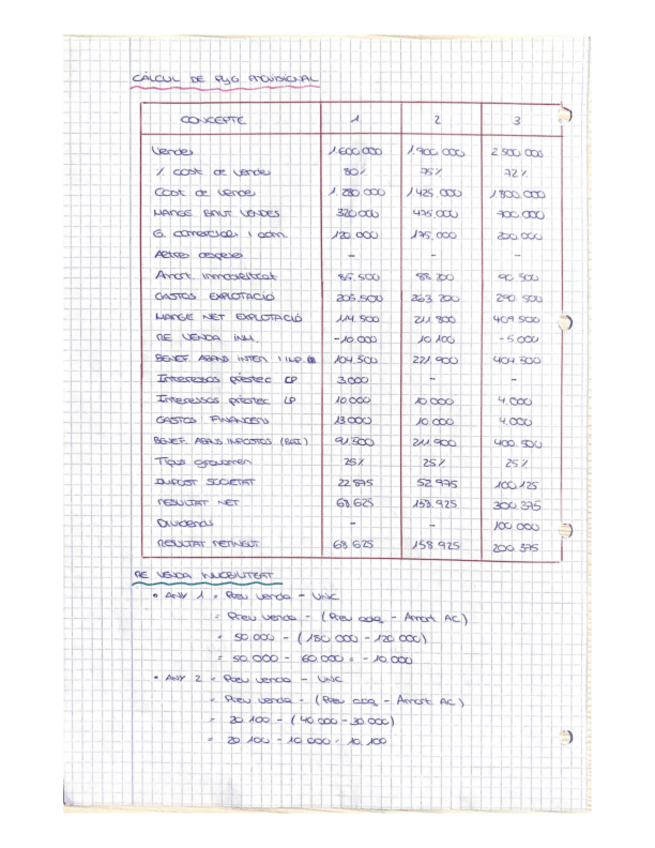 CÀLCUL DE PyG PROVISIONAL
CONCEPTE 1 2 3
Vendes 1.600.000 1.900.000 2.500.000
% cost de vendes 80% 75% 72%
Cost de vendes 1.280.000 1.425.000 1.800.000
MARGE BRUT VENDES 320.000 475.000 700.000
G. comercials i adm. 120.000 175.000 200.000
Altres despeses - - -
Amort. immobilitzat 85.500 88.200 90.500
GASTOS EXPLOTACIÓ 205.500 263.200 290.500
MARGE NET EXPLOTACIÓ 114.500 211.800 409.500
RE VENDA INM. -10.000 10.100 -5.000
BENEF. ABANS INTER. I IMP. 104.500 221.900 404.500
Interessos préstec CP 3.000 - -
Interessos préstec LP 10.000 10.000 4.000
GASTOS FINANCERS 13.000 10.000 4.000
BENEF. ABANS IMPOSTOS (BAI) 91.500 211.900 400.500
Tipus gravamen 25% 25% 25%
IMPOST SOCIETAT 22.875 52.975 100.125
RESULTAT NET 68.625 158.925 300.375
Dividends - - 100.000
RESULTAT RETINGUT 68.625 158.925 200.375
RE VENDA IMMOBILITZAT
• ANY 1 = Preu venda - VNC
= Preu venda - (Preu adq. - Amort. AC)
= 50.000 - (180.000 - 120.000)
= 50.000 - 60.000 = -10.000
• ANY 2 = Preu venda - VNC
= Preu venda - (Preu adq. - Amort. AC)
= 20.100 - (40.000 - 30.000)
= 20.100 - 10.000 = 10.100